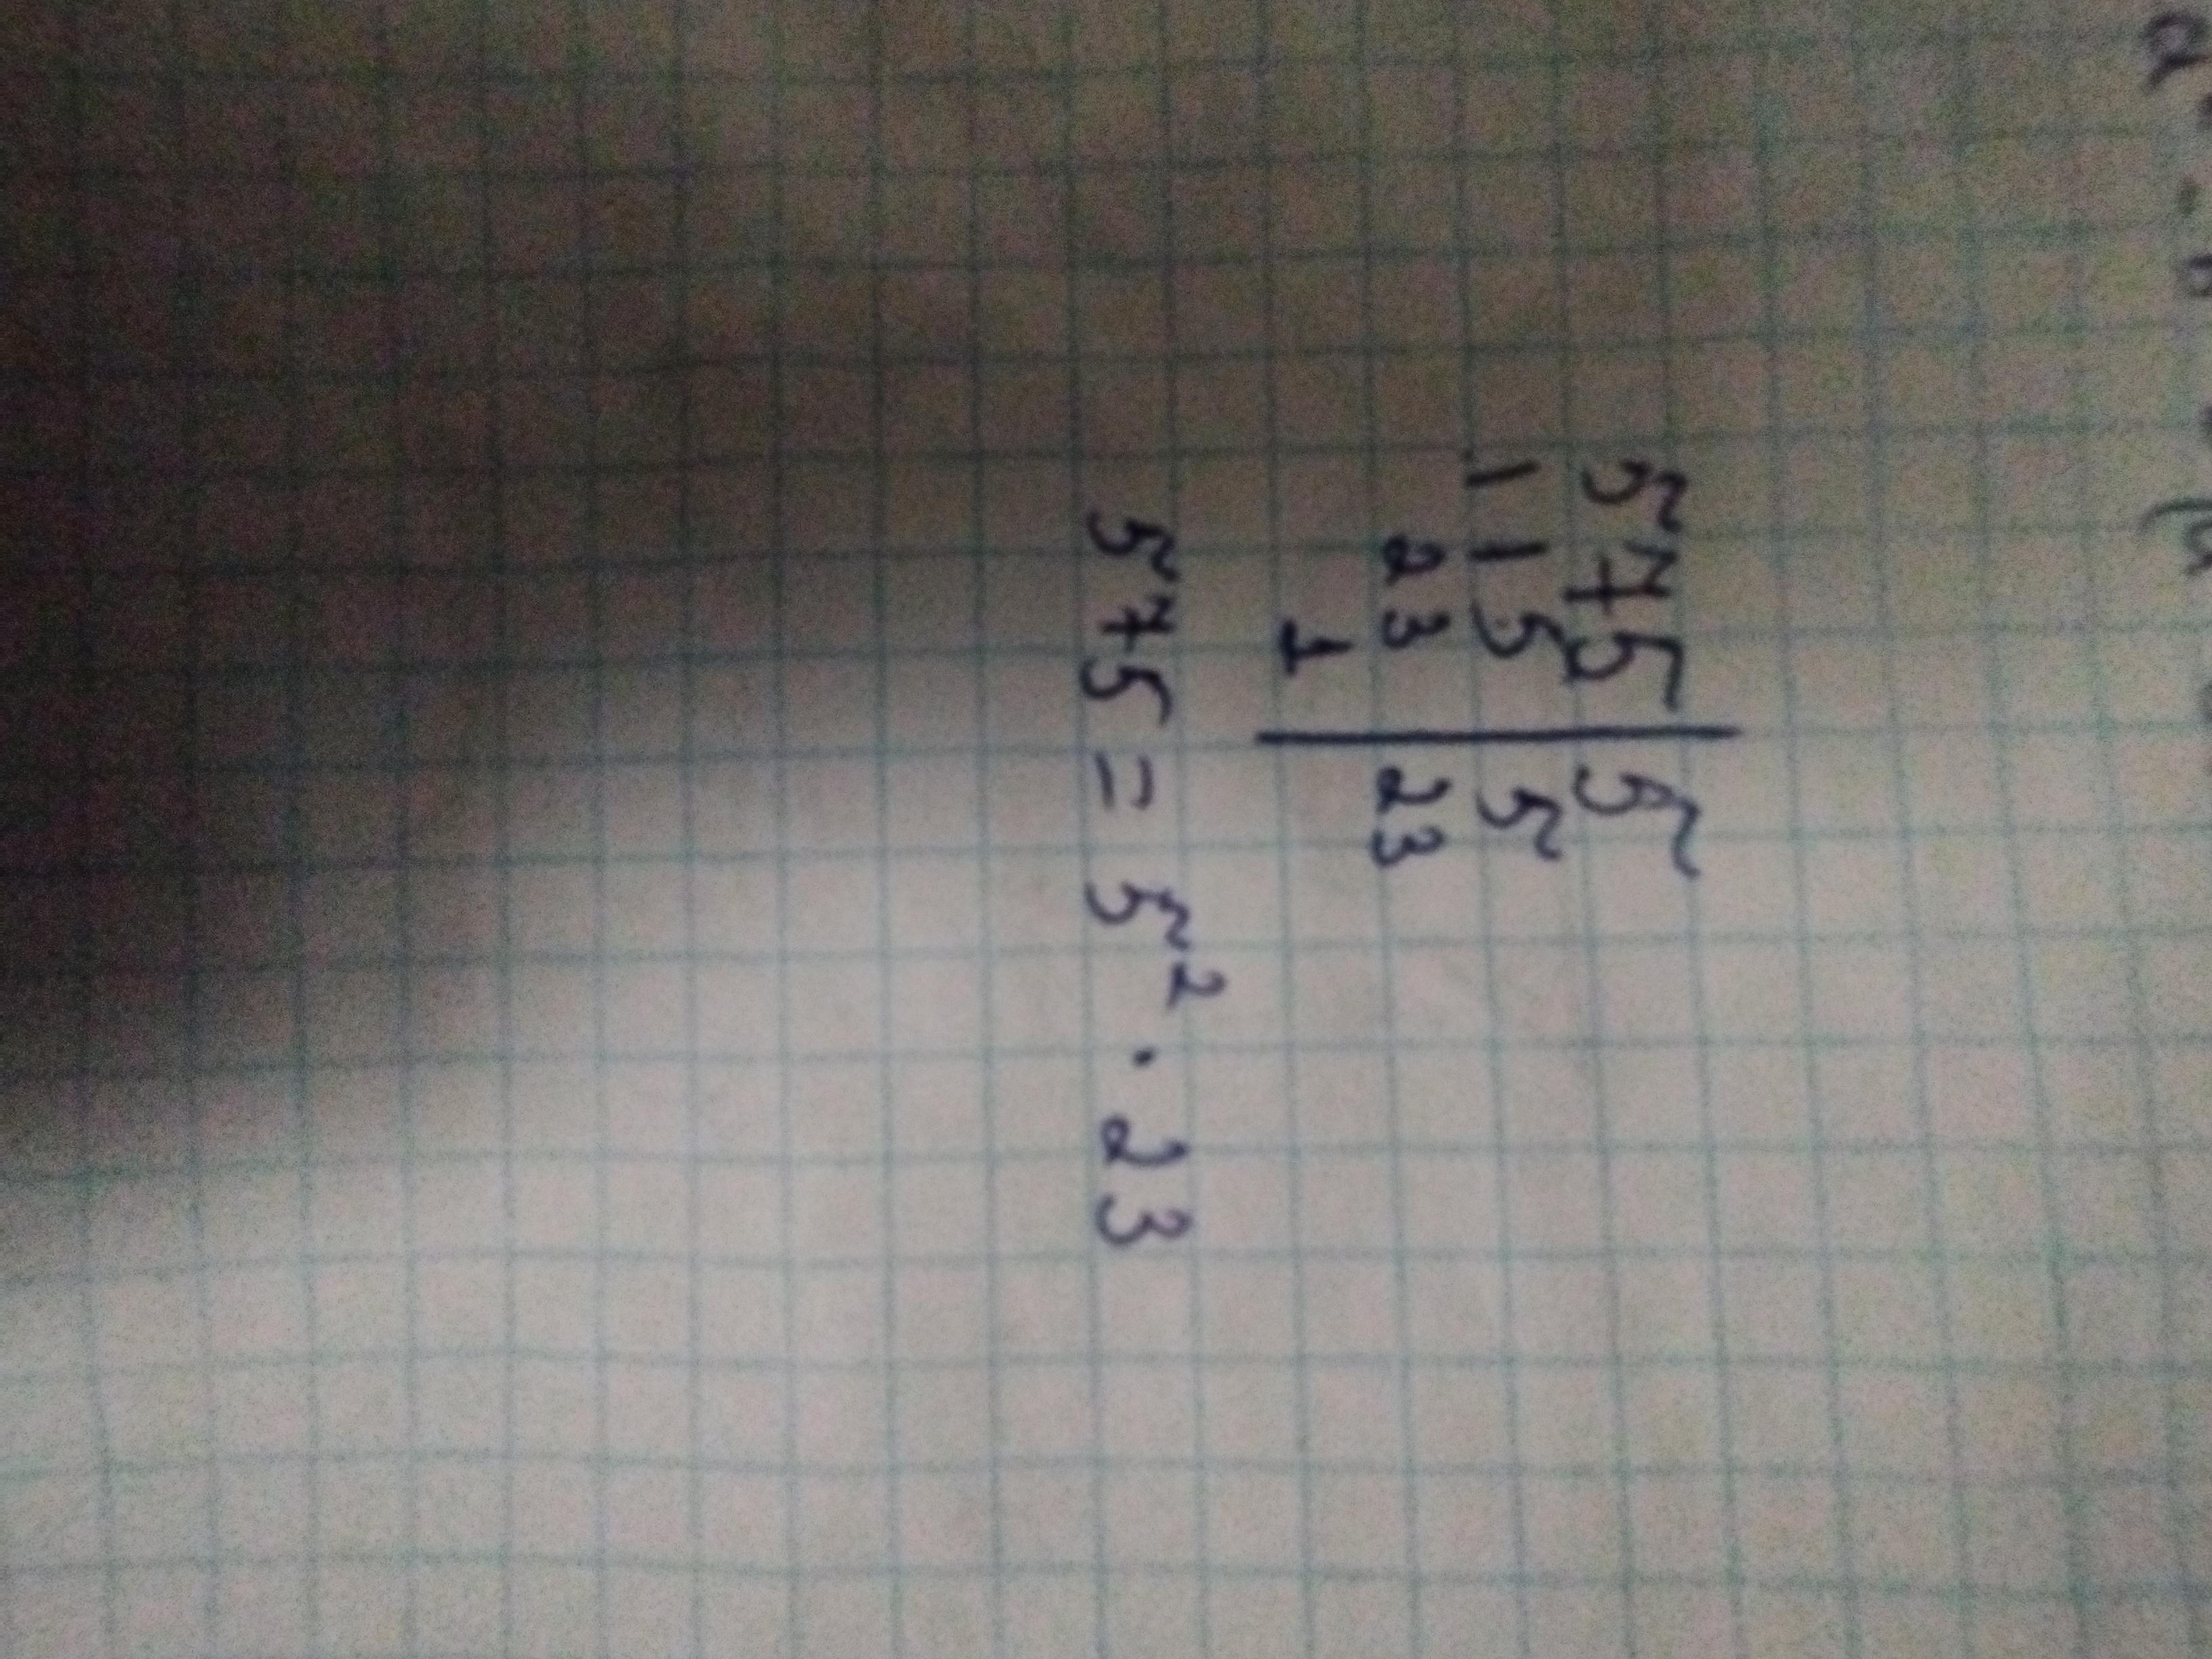 575 | 5
115 | 5
23 | 23
1 |
575 = 5² · 23